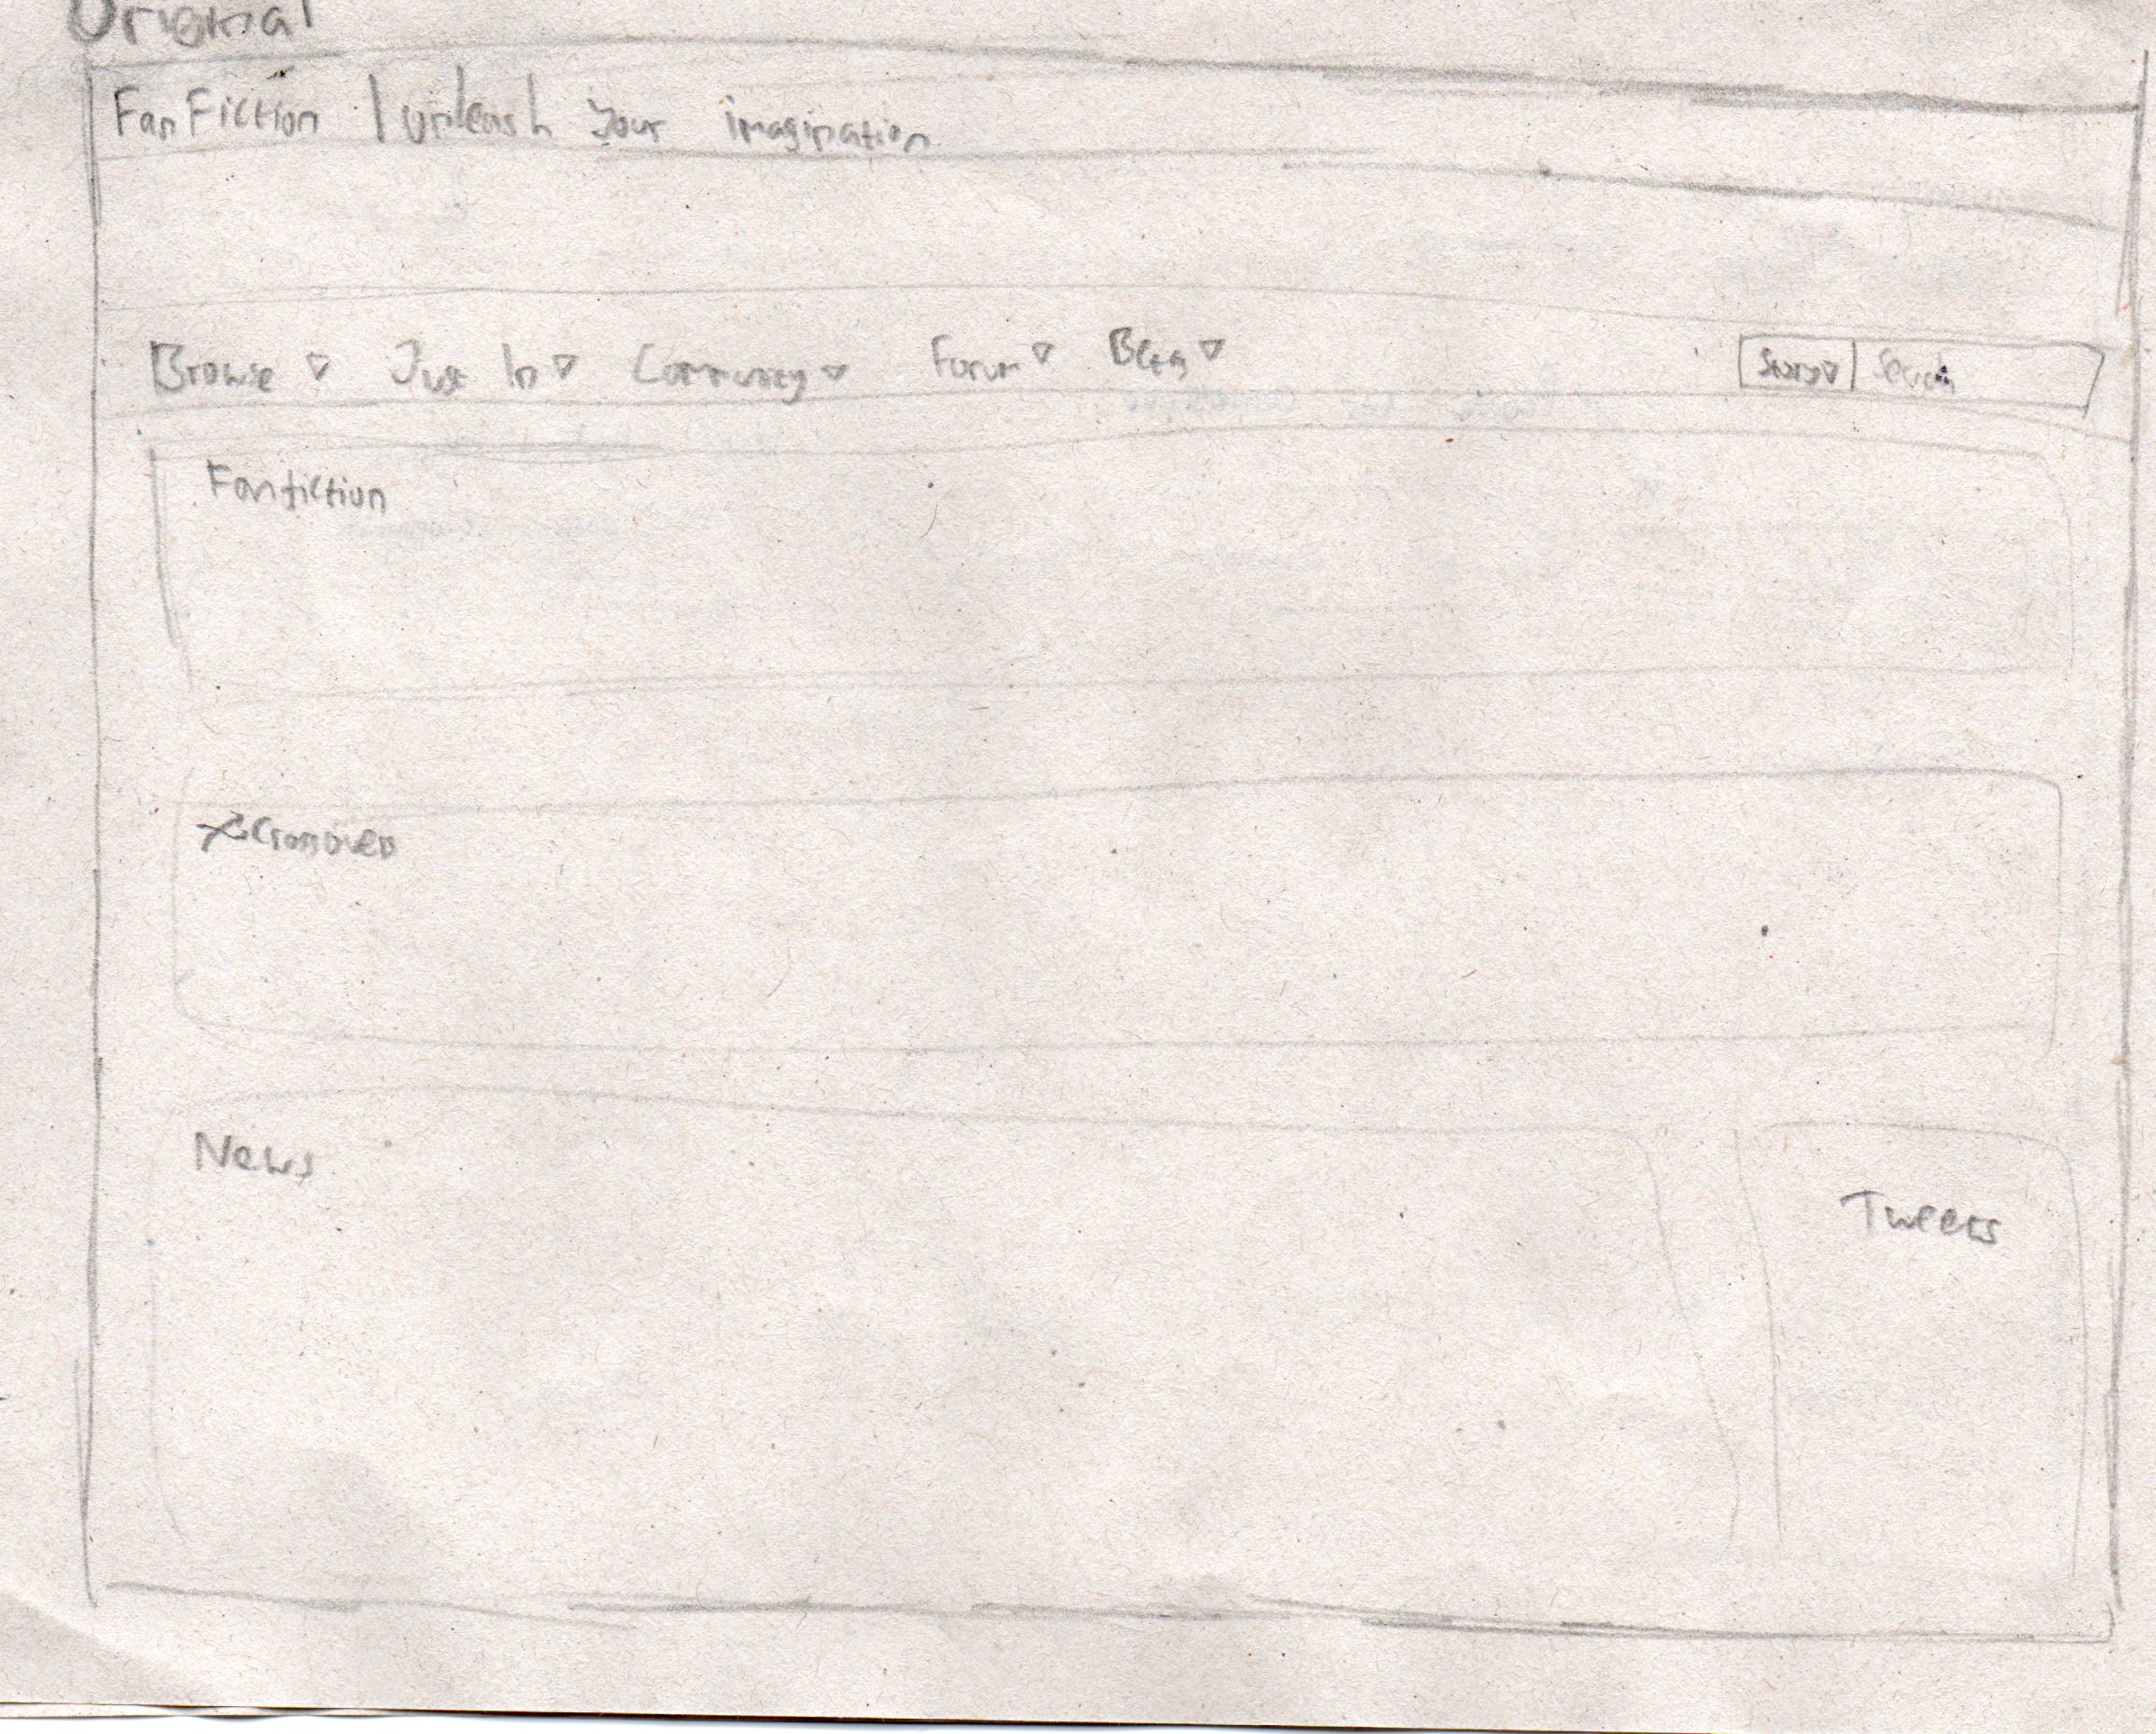 Original
FanFiction | unleash your imagination
Browse ▽ Just In ▽ Community ▽ Forum ▽ Beta ▽ Story ▽ | Search
Fanfiction
Crossover
News
Tweets